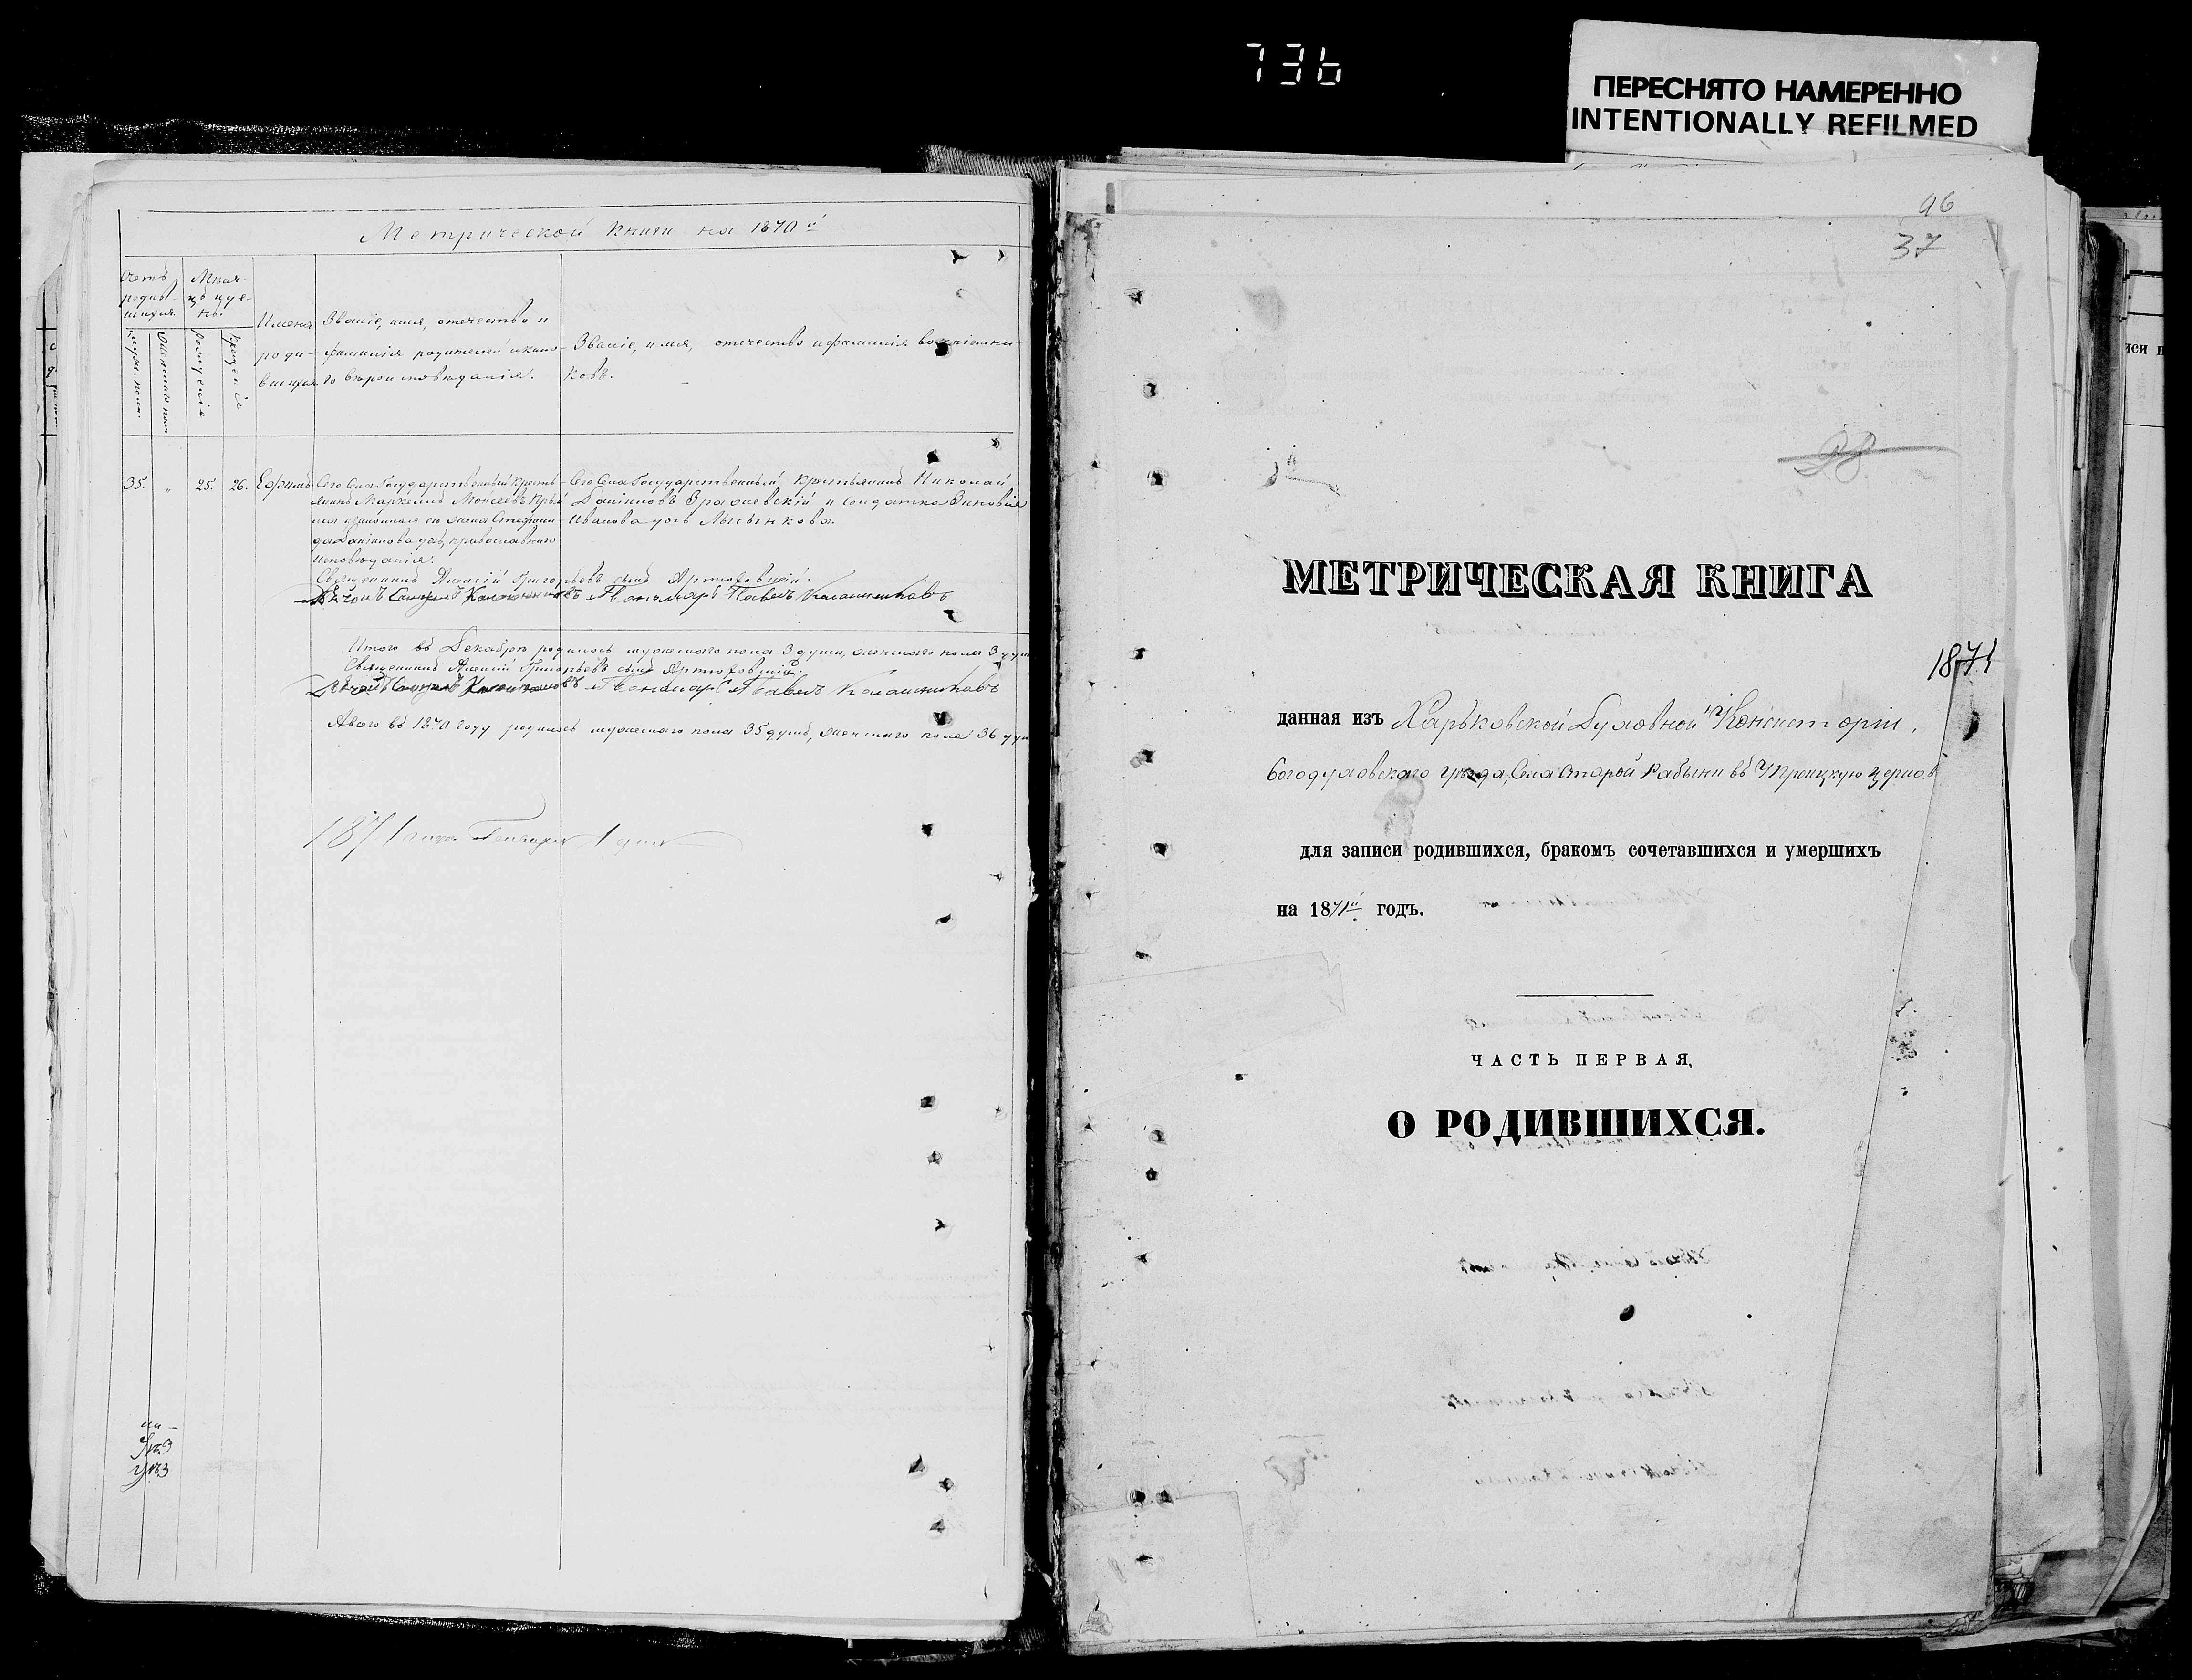 736
ПЕРЕСНЯТО НАМЕРЕННО
INTENTIONALLY REFILMED
Метрической книги на 1870й
Счетъ родив-шихся.
Мужеска пола.
Женскаго пола
Мѣся-цъ и де-нь.
Рожденіе
Крещеніе
Имена роди-вшихся
Званіе, имя, отчество и
фамилія родителей и како-
го вѣроисповѣданія.
Званіе, имя, отчество и фамилія воспріемни-
ковъ.
35. " 25. 26. Ефимъ
Сего Села Государственный кресть-
янинъ Маркеллъ Моисеевъ
и законная его жена Стефани-
да Даніилова дочь, православнаго
исповѣданія.
Сего Села Государственный крестьянинъ Николай
Данііловъ и солдатка Зиновія
Иванова дочь
Священникъ Алексій Григорьевъ сынъ Артюховскій.
Пономарь Павелъ Калашниковъ
Итого въ Декабрѣ родилось мужескаго пола 3 души, женскаго пола 3 души
Священникъ Алексій Григорьевъ сынъ Артюховскій.
Пономарь Павелъ Калашниковъ
Авсего въ 1870 году родилось мужескаго пола 35 душъ, женскаго пола 36 душ
1871 года Генваря 1 дня
96
37
28
МЕТРИЧЕСКАЯ КНИГА
1871
данная изъ Харьковской Духовной Консисторіи,
Богодуховскаго уѣзда, Села Старой Рябыни въ Троицкую церковь
для записи родившихся, бракомъ сочетавшихся и умершихъ
на 1871й годъ.
ЧАСТЬ ПЕРВАЯ,
О РОДИВШИХСЯ.